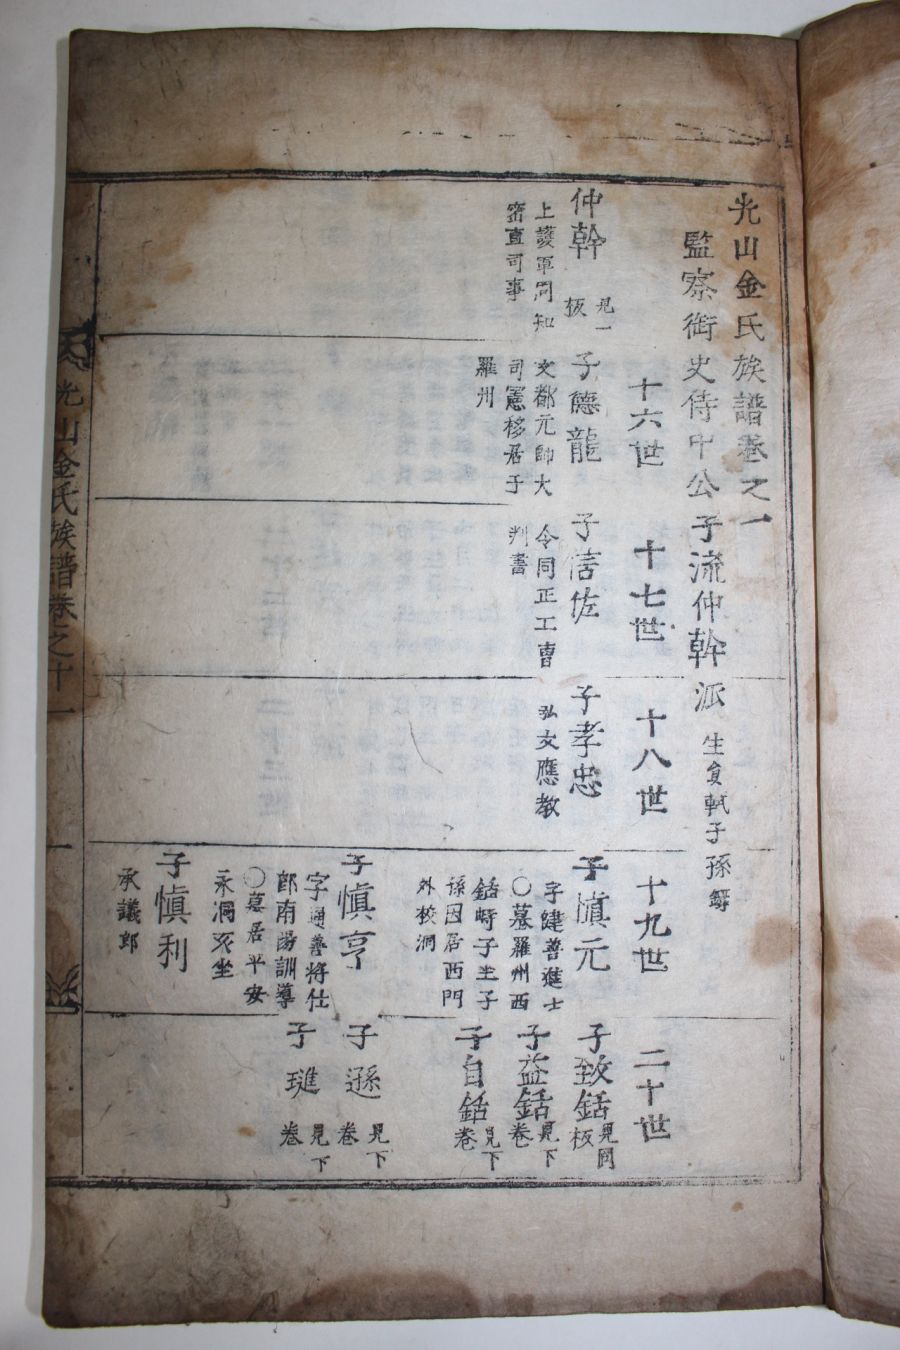 光山金氏族譜卷之一
監察御史侍中公子流仲幹派 生員軾子孫等
十六世
十七世
十八世
十九世
二十世
仲幹 見一板
上護軍同知
密直司事
子德龍
文都元帥大
司憲移居于
羅州
子信佐
令同正工曹
判書
子孝忠
弘文應教
子愼元
字健善進士
〇墓羅州西
銛峙子生子
孫因居西門
外校洞
子愼亨
字通善將仕
郎南陽訓導
〇墓居平安
永洞亥坐
子愼利
承議郎
子致銛 見同板
子益銛 見下卷
子自銛 見下卷
子遜 見下卷
子璡 見下卷
光山金氏族譜卷之十一
一